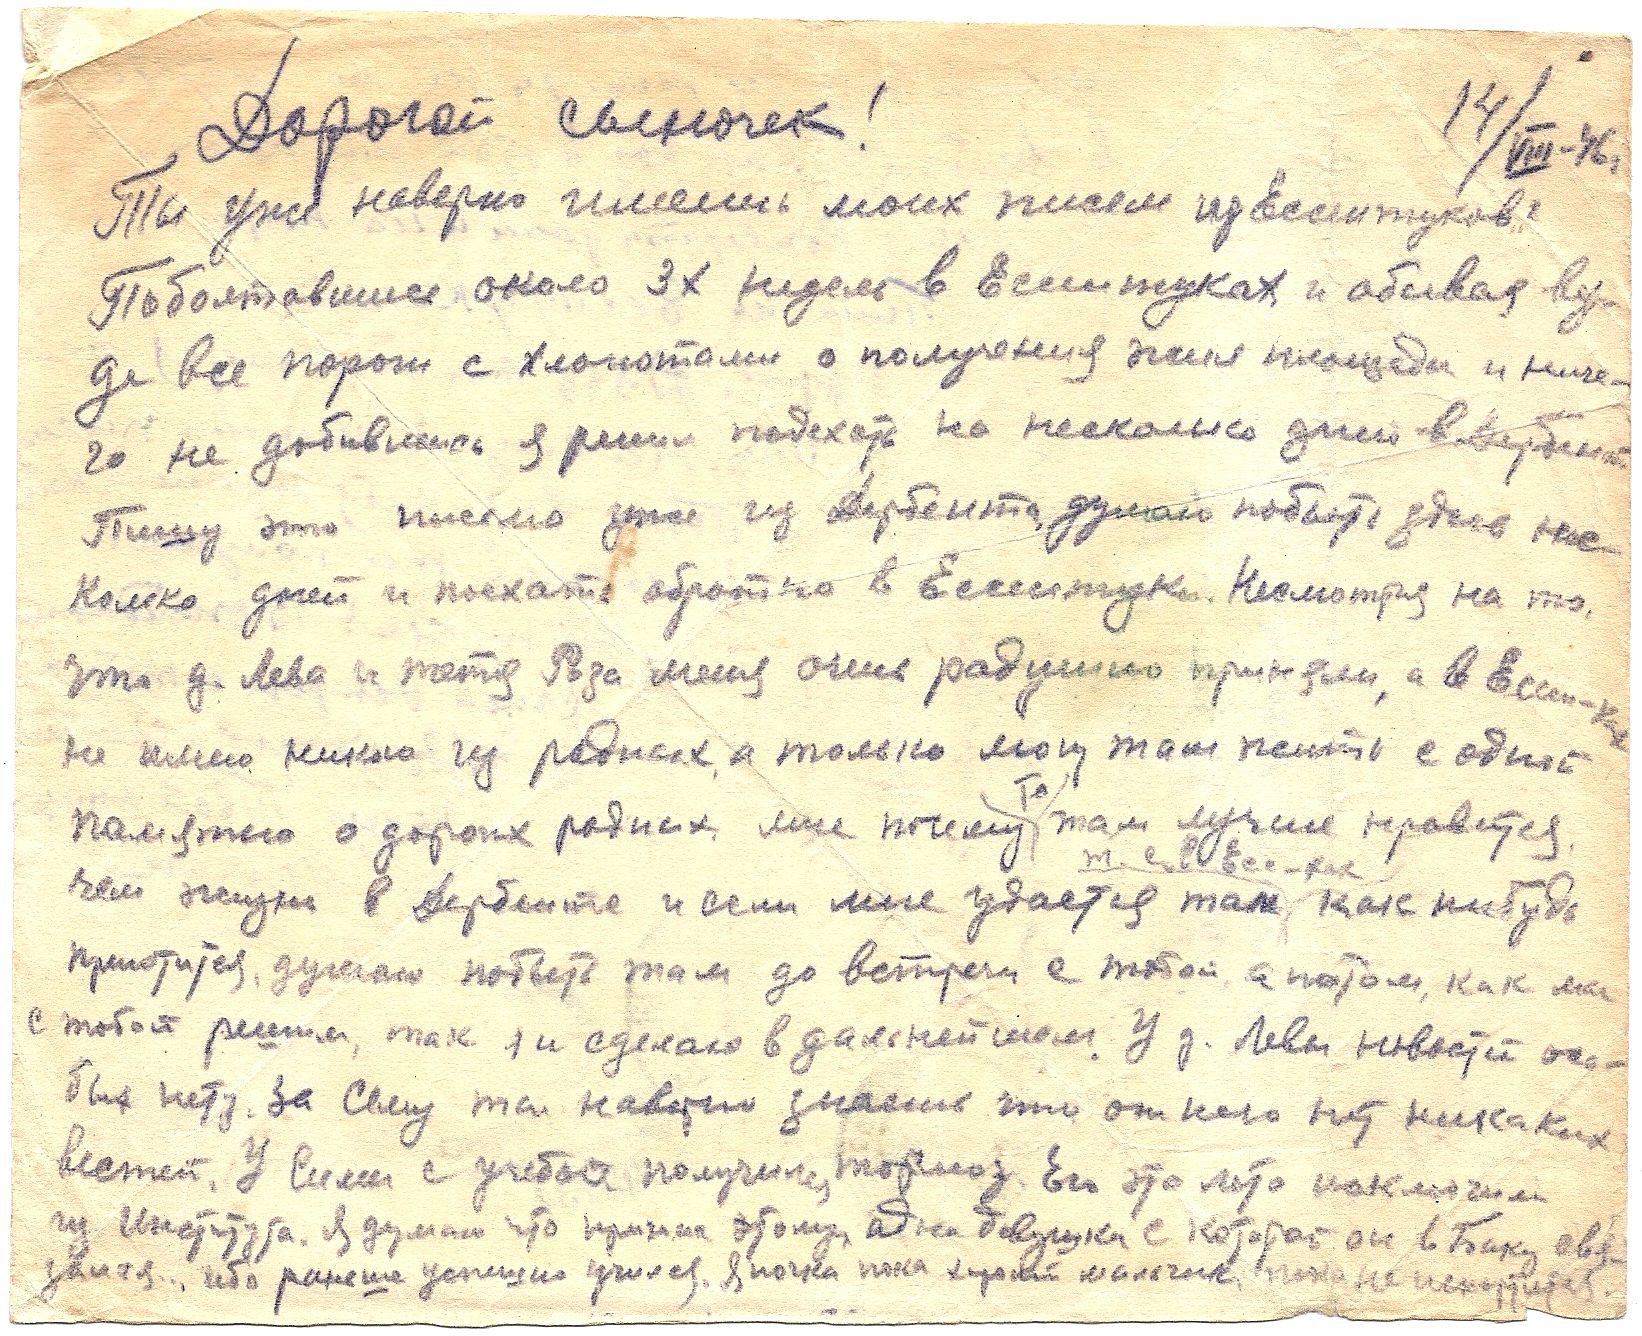 Дорогой сыночек!
14/VIII-46г.
Ты уже наверно имеешь моих писем из Ессентуков?
Поболтавшись около 3х недель в Ессентуках и обивая вез-
де все пороги с хлопотами о получения жил площади и ниче-
го не добившись я решил подехать на несколько дней в Дербент
Пишу это письмо уже из Дербента, думаю побыть здесь нес-
колко дней и поехать обратно в Ессентуки. Несмотря на то,
что д. Лева и тетя Роза меня очень радушно приняли, а в Ессен-ках
не имею никого из родных, а только могу там жить с одной
памятью о дорогих родных, мне почему то там лучше нравится,
т. е. в Есс-ках
чем жизнь в Дербенте и если мне удастся там как нибудь
приютится, думаю побыть там до встречи с тобой, а потом, как мы
с тобой решим, так я и сделаю в дальнейшем. У д. Левы новостей осо-
бых нету. За Сёму ты наверно знаешь что от него нет никаких
вестей. У Симы с учебой получился тормоз. Его это лето исключили
из Института. Я думаю что причина этому, одна девушка с которой он в Баку свя-
зался, ибо раньше успешно учился. Яночка пока хороший мальчик, пока не испортится.